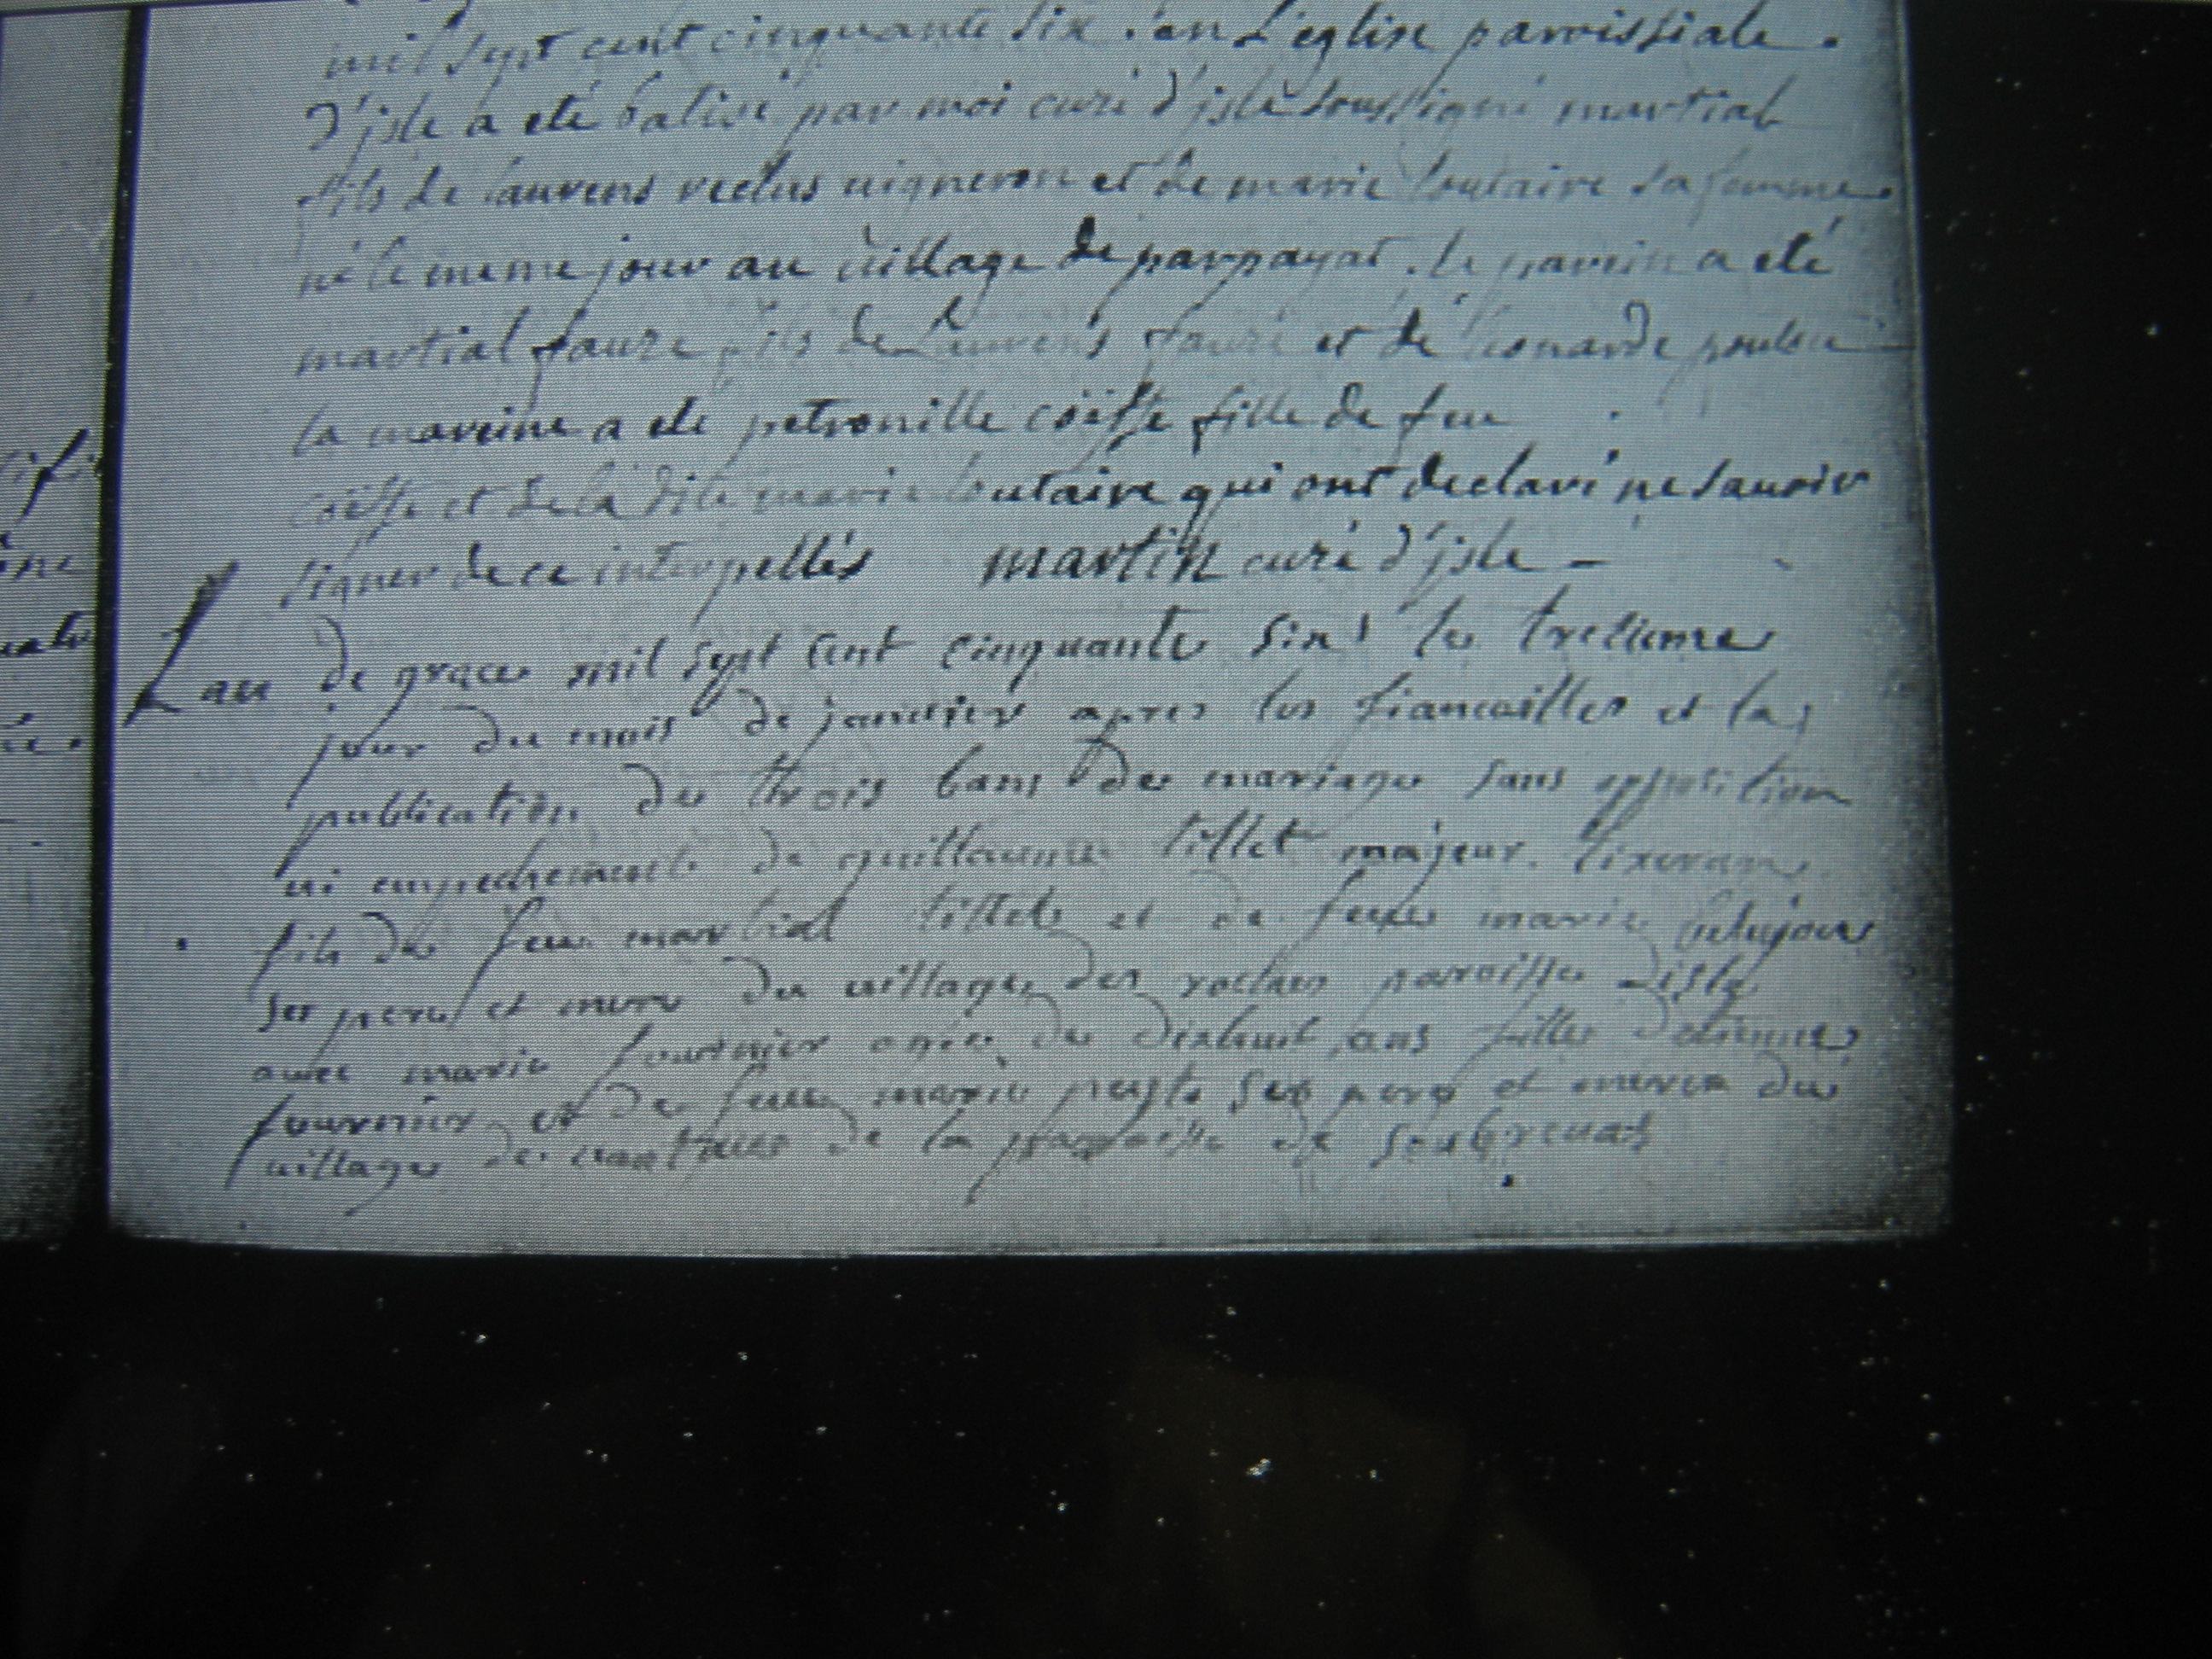 mil sept cent cinquante six. en L'eglise parroissiale.
d'jsle a eté batisé par moi curé d'jsle soussigné martial
fils de laurens reclus uigneron et de marie loutaire sa femme.
né le meme jour au village de parpayat. le parein a eté
martial faure fils de laurens faure et de leonarde
la mareine a eté petronille coiffe fille de feu
coiffe et de la dite marie loutaire qui ont declaré ne sauoir
signer de ce interpellés martin curé d'jsle -
Lan de grace mil sept cent cinquante six le tresieme
jour du mois de januier apres les fiancailles et la
publication de trois bans de mariage sans opposition
ni empechement de guillaume tillet majeur. tixeran
fils de feu martial tillet et de feue marie
ses pere et mere du uillage des roches paroisse disle
auec marie fournier agée de dixhuit ans fille detienne
fournier et de feue marie ses pere et mere du
uillage de de la paroisse de
ine